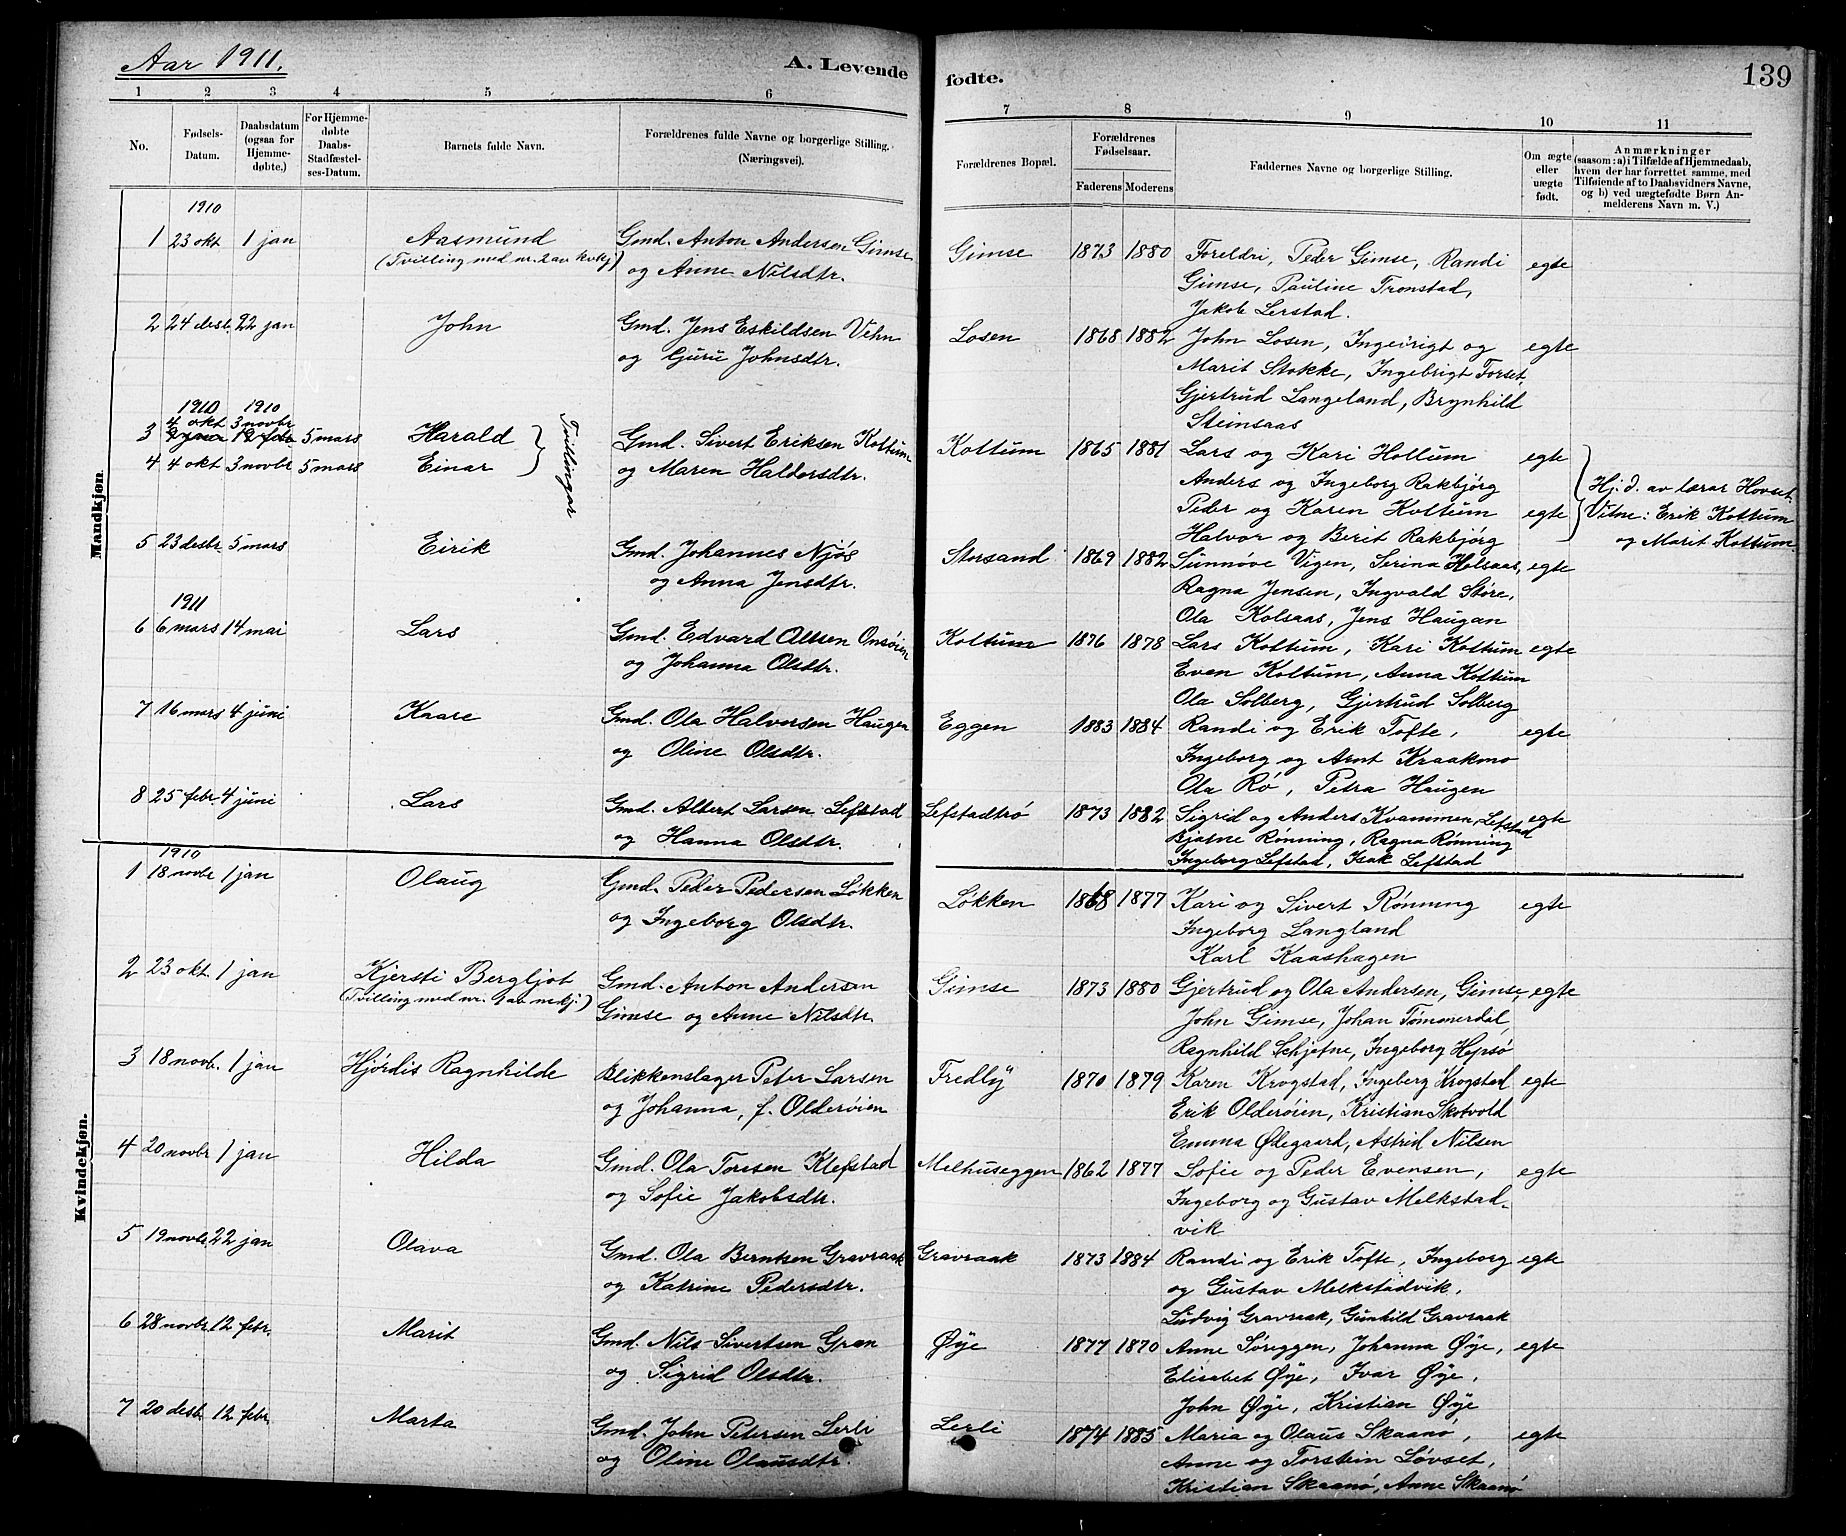 Aar 1911.
A. Levende fødte.
139
1 2 3 4 5 6 7 8 9 10 11
No.
Fødsels-Datum.
Daabsdatum (ogsaa for Hjemme-døbte.)
For Hjemme-døbte Daabs-Stadfæstel-ses-Datum.
Barnets fulde Navn.
Forældrenes fulde Navne og borgerlige Stilling. (Næringsvei).
Forældrenes Bopæl.
Forældrenes Fødselsaar.
Faderens Moderens
Faddernes Navne og borgerlige Stilling.
Om ægte eller uægte født.
Anmærkninger (saasom: a) i Tilfælde af Hjemmedaab, hvem der har forrettet samme, med Tilføiende af to Daabsvidners Navne, og b) ved uægtefødte Børn An-melderens Navn m. V.)
Mandkjøn.
1910
1 23 okt 1 jan Aasmund Gmd. Anton Andersen Gimse Gimse 1873 1880 Foreldri, Peder Gimse, Randi egte
(Tvilling med nr. 2 av kvkj) og Anne Nilsdtr. Gimse, Pauline Tronstad,
Jakob Lerstad.
2 24 desb. 22 jan John Gmd. Jens Eskildsen Vehn Losen 1868 1882 John Losen, Ingebrigt og egte
og Guru Johnsdtr. Marit Stokke, Ingebrigt Forset,
Gjertrud Langeland, Brynhild
Steinsaas
1910 1910
4 okt 3 novbr
3 5 mars Harald Gmd. Sivert Eriksen Kottum Kottum 1865 1881 Lars og Kari Hollum egte
4 4 okt 3 novbr 5 mars Einar og Maren Haldorsdtr. Anders og Ingeborg Rakbjørg
Tvillingar
Peder og Karen Kottum egte
Halvor og Berit Rakbjørg
Hj. d. av lærar Hovset.
Vitne: Erik Kottum
og Marit Kottum.
5 23 desbr 5 mars Eirik Gmd. Johannes Njøs Storsand 1869 1882 Sunnøve Vigen, Serina Kolsaas, egte
og Anna Jensdtr. Ragna Jensen, Ingvald Støre,
Ola Kolsaas, Jens Haugan
1911
6 6 mars 14 mai Lars Gmd. Edvard Olsen Onsøien Kottum 1876 1878 Lars Kottum, Kari Kottum egte
og Johanna Olsdtr. Even Kottum, Anna Kottum
Ola Solberg, Gjertrud Solberg
7 16 mars 4 juni Kaare Gmd. Ola Halvorsen Haugen Eggen 1883 1884 Randi og Erik Tofte, egte
og Oline Olsdtr. Ingeborg og Arnt Kraakmo
Ola Rø, Petra Haugen
8 25 febr 4 juni Lars Gmd. Albert Larsen Lefstad Lefstadtrø 1873 1882 Sigrid og Anders Kvammen, Lefstad egte
og Hanna Olsdtr. Bjarne Rønning, Ragna Rønning
Ingeborg Lefstad, Isak Lefstad
Kvindekjøn.
1910
1 18 novbr 1 jan Olaug Gmd. Peder Pedersen Løkken Løkken 1868 1877 Kari og Sivert Rønning egte
og Ingeborg Olsdtr. Ingeborg Langland
Karl Kaashagen
2 23 okt. 1 jan Kjersti Bergljot Gmd. Anton Andersen Gimse 1873 1880 Gjertrud og Ola Andersen, Gimse, egte
(Tvilling med nr. 1 av mkj.) Gimse og Anne Nilsdtr. John Gimse, Johan Tømmerdal,
Ragnhild Schjetne, Ingeborg Hepsø
3 18 novb. 1 jan Hjørdis Ragnhilde Blikkenslager Peter Larsen Fredly 1870 1879 Karen Krogstad, Ingeberg Krogstad egte
og Johanna, f. Olderøien Erik Olderøien, Kristian Skotvold
Emma Ødegaard, Astrid Nilsen
4 20 novbr 1 jan Hilda Gmd. Ola Toresen Klefstad Melhuseggen 1862 1877 Sofie og Peder Evensen, egte
og Sofie Jakobsdtr. Ingeborg og Gustav Melkstad-
vik
5 19 novbr. 22 jan Olava Gmd. Ola Berntsen Gravraak Gravraak 1873 1884 Randi og Erik Tofte, Ingeborg egte
og Katrine Pedersdtr. og Gustav Melkstadvik,
Ludvig Gravraak, Gunhild Gravraak
6 28 novbr 12 febr. Marit Gmd. Nils Sivertsen Gran Øye 1877 1870 Anne Søreggen, Johanna Øye, egte
og Sigrid Olsdtr. Elisabet Øye, Ivar Øye,
John Øye, Kristian Øye
7 20 desb. 12 febr. Marta Gmd. John Petersen Lerli Lerli 1874 1885 Maria og Olaus Skaanø, egte
og Oline Olausdtr. Anne og Torstein Løvset,
Kristian Skaanø, Anne Skaanø